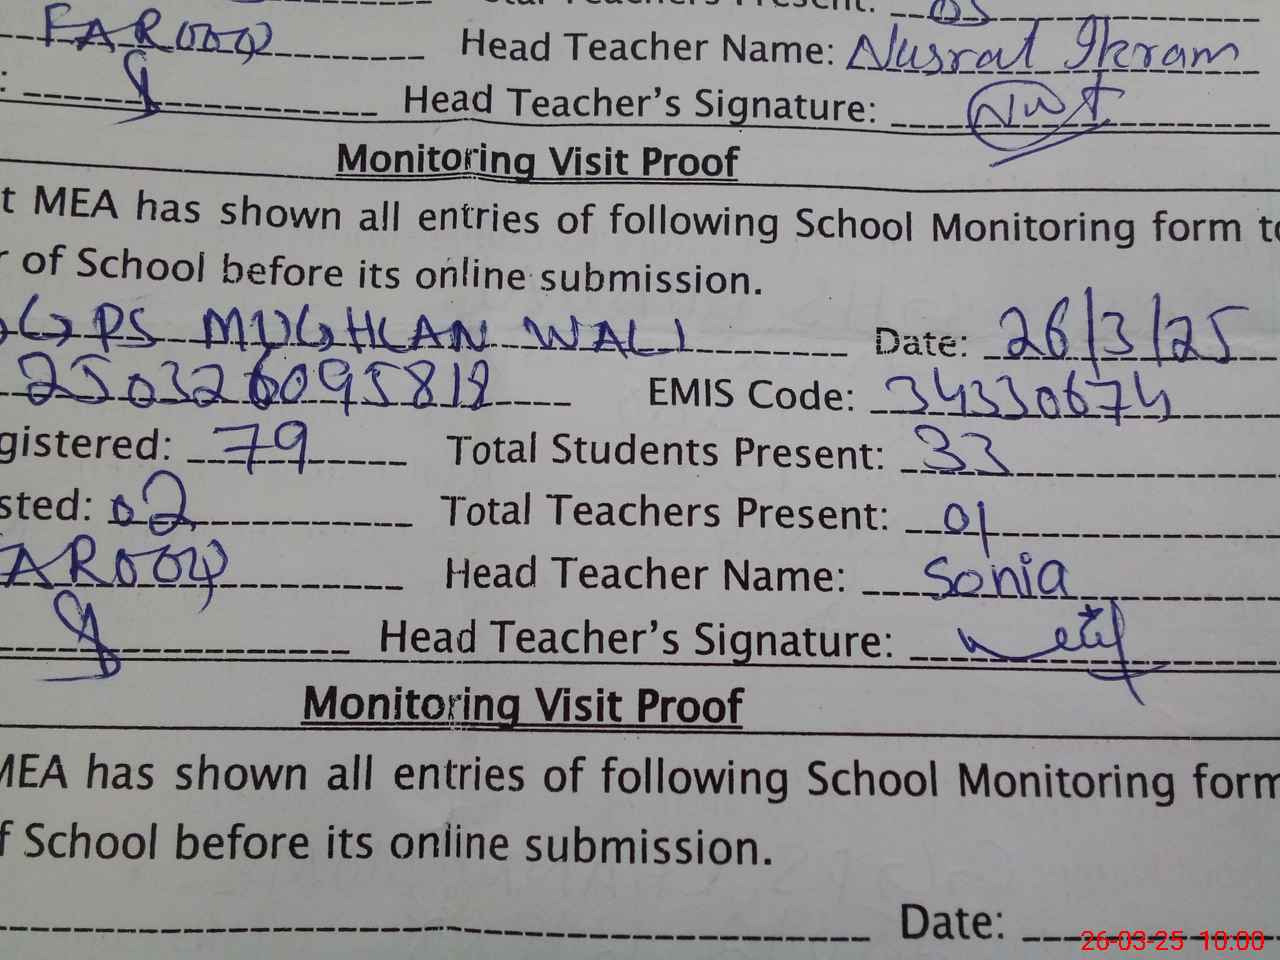 FAROOQ Head Teacher Name: Nusrat Ikram
: Head Teacher's Signature:
Monitoring Visit Proof
t MEA has shown all entries of following School Monitoring form to
r of School before its online submission.
GPS MUGHLAN WALI Date: 26/3/25
250326095818 EMIS Code: 34330674
gistered: 79 Total Students Present: 33
sted: 02 Total Teachers Present: 01
FAROOQ Head Teacher Name: Sonia
Head Teacher's Signature:
Monitoring Visit Proof
MEA has shown all entries of following School Monitoring form
f School before its online submission.
Date:
26-03-25 10:00